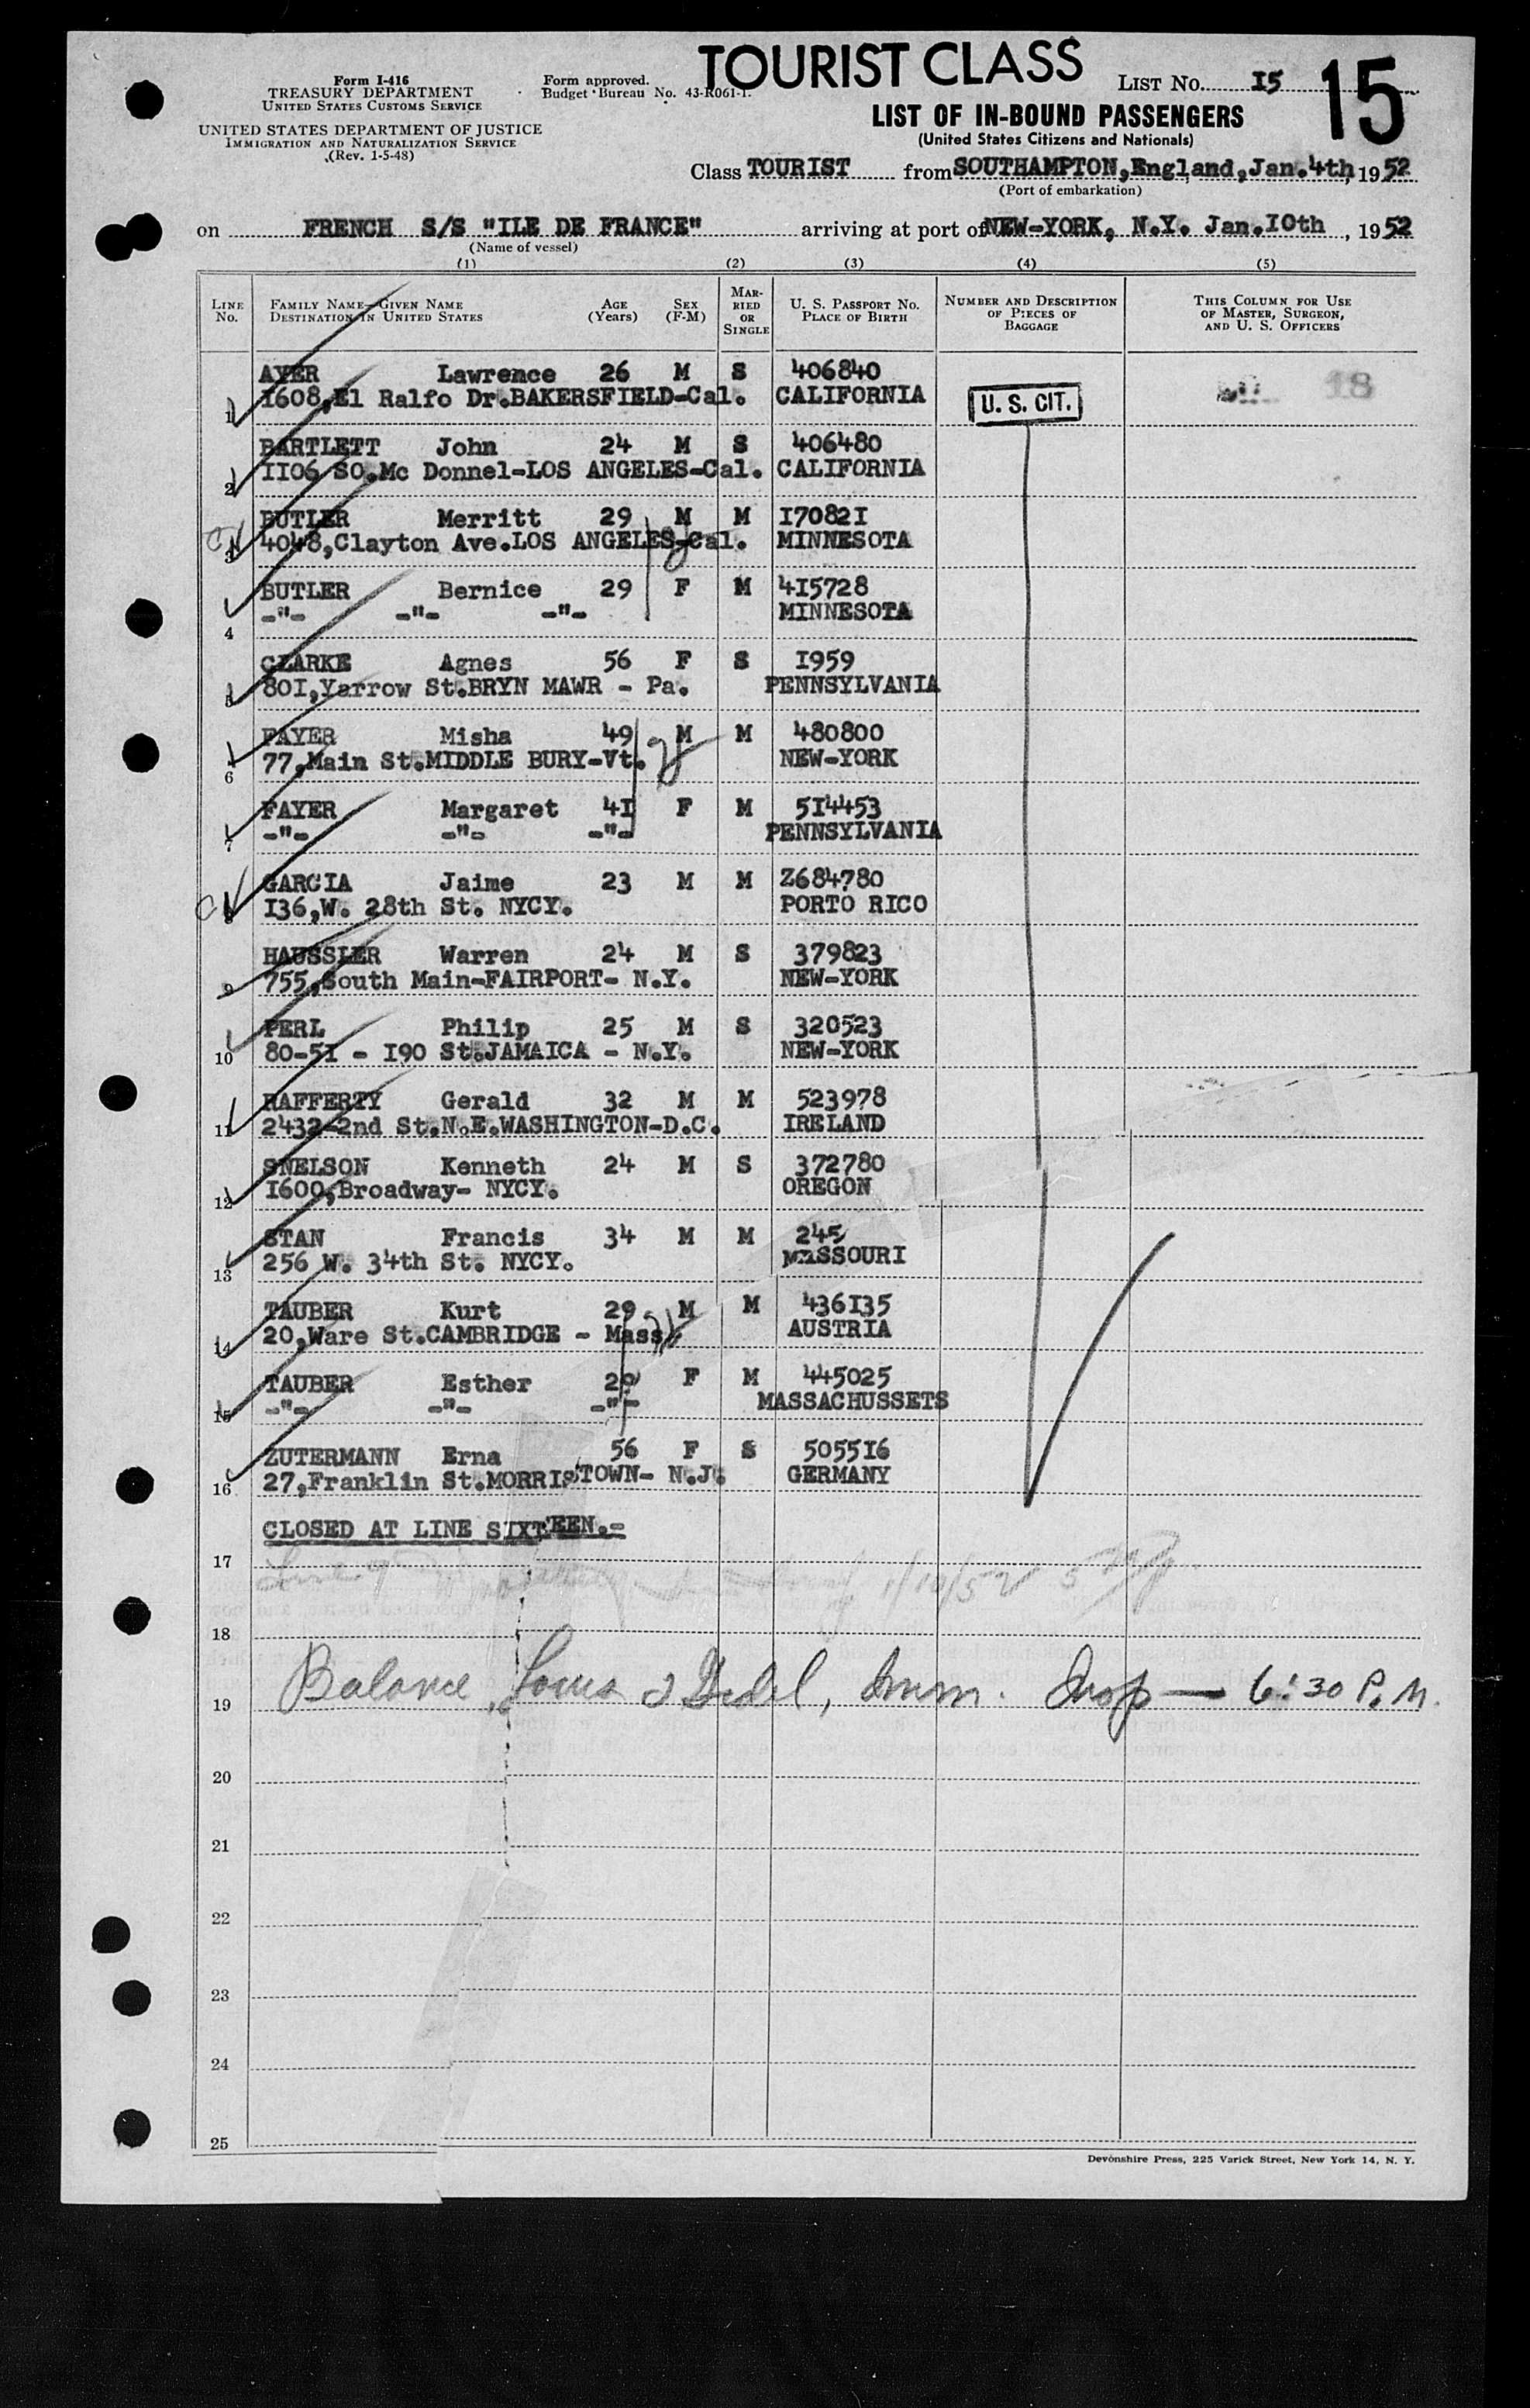 TOURIST CLASS
Form I-416
TREASURY DEPARTMENT
UNITED STATES CUSTOMS SERVICE
UNITED STATES DEPARTMENT OF JUSTICE
IMMIGRATION AND NATURALIZATION SERVICE
(Rev. 1-5-48)
Form approved.
Budget Bureau No. 43-R061-1.
LIST No. 15
15
LIST OF IN-BOUND PASSENGERS
(United States Citizens and Nationals)
Class TOURIST from SOUTHAMPTON, England, Jan. 4th, 1952
(Port of embarkation)
on FRENCH S/S "ILE DE FRANCE" arriving at port of NEW-YORK, N.Y. Jan. 10th, 1952
(Name of vessel)
(1) (2) (3) (4) (5)
LINE No. FAMILY NAME—GIVEN NAME DESTINATION IN UNITED STATES AGE (Years) SEX (F-M) MARRIED OR SINGLE U. S. PASSPORT No. PLACE OF BIRTH NUMBER AND DESCRIPTION OF PIECES OF BAGGAGE THIS COLUMN FOR USE OF MASTER, SURGEON, AND U. S. OFFICERS
AYER Lawrence 26 M S 406840
1 1608,El Ralfo Dr.BAKERSFIELD-Cal. CALIFORNIA U. S. CIT. 18
BARTLETT John 24 M S 406480
2 1106 SO.Mc Donnel-LOS ANGELES-Cal. CALIFORNIA
BUTLER Merritt 29 M M 170821
3 4048,Clayton Ave.LOS ANGELES-Cal. MINNESOTA
BUTLER Bernice 29 F M 415728
4 -"- -"- -"- MINNESOTA
CLARKE Agnes 56 F S 1959
5 801,Yarrow St.BRYN MAWR - Pa. PENNSYLVANIA
FAYER Misha 49 M M 480800
6 77,Main St.MIDDLE BURY-Vt. NEW-YORK
FAYER Margaret 41 F M 514453
7 -"- -"- -"- PENNSYLVANIA
GARCIA Jaime 23 M M Z684780
8 136,W. 28th St. NYCY. PORTO RICO
HAUSSLER Warren 24 M S 379823
9 755,South Main-FAIRPORT- N.Y. NEW-YORK
PERL Philip 25 M S 320523
10 80-51 - 190 St.JAMAICA - N.Y. NEW-YORK
RAFFERTY Gerald 32 M M 523978
11 2432-2nd St.N.E.WASHINGTON-D.C. IRELAND
SNELSON Kenneth 24 M S 372780
12 1600,Broadway- NYCY. OREGON
STAN Francis 34 M M 245
13 256 W. 34th St. NYCY. MISSOURI
TAUBER Kurt 29 M M 436135
14 20,Ware St.CAMBRIDGE - Mass. AUSTRIA
TAUBER Esther 29 F M 445025
15 -"- -"- -"- MASSACHUSSETS
ZUTERMANN Erna 56 F S 505516
16 27,Franklin St.MORRISTOWN- N.J. GERMANY
CLOSED AT LINE SIXTEEN.-
17 1/10/52
18
19 Balance, Imm. Insp — 6:30 P.M.
20
21
22
23
24
25
Devonshire Press, 225 Varick Street, New York 14, N. Y.